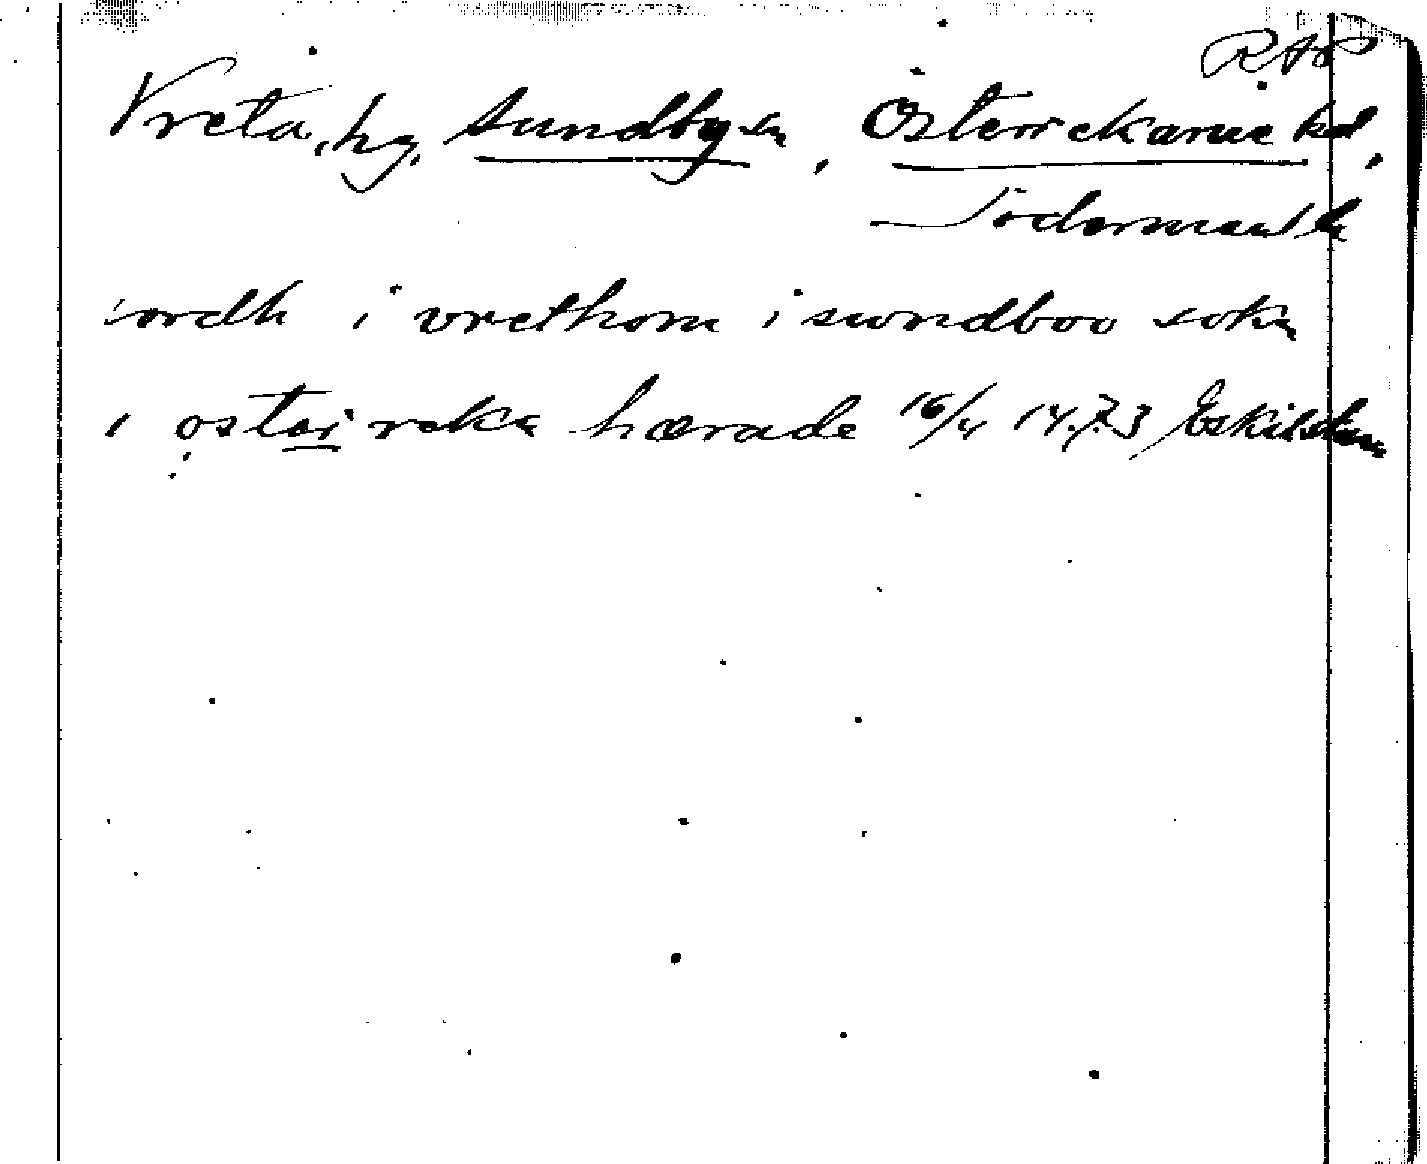 RAP
Vreta, hg, Sundby sn, Österrekarne hd,
Södermanl ln
iordh i vrethom i swndboo sokn
i ostærreka hærade 16/4 1473 Eskilstuna